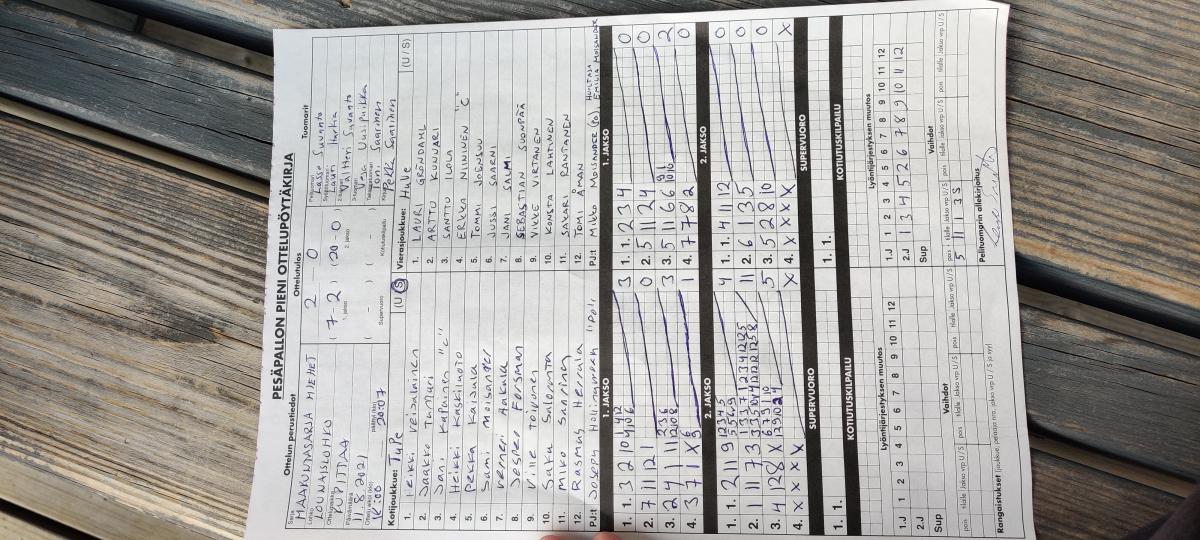 PESÄPALLON PIENI OTTELUPÖYTÄKIRJA
Ottelun perustiedot
Ottelutulos
Tuomarit
Sarja
MAAKUNNASARJA MIEHET
Lohko
LOUNAISLOHKO
Ottelupaikka
KUPITTAA
Päivämäärä
11.8.2021
Ottelu alkoi (klo)
18:00
päättyi (klo)
20:07
2 - 0
( 7 - 2 ) ( 20 - 0 )
1. jakso
2. jakso
( - ) ( - )
Supervuoro
Kotiutuskilpailu
Lasse Suvanto
Lauri
Valtteri Suvanto
Vesa Uusipaikka
Joni Saarinen
Pekka Saarinen
Kotijoukkue: TuPe
(U / S)
1. Heikki Veijalainen
2. Jaakko Tammari
3. Jani Kapanen "C"
4. Heikki Kaskiluoto
5. Pekka Kaijala
6. Sami Moisander
7. Verneri Ankelo
8. Jesper Forsman
9. Ville Toivonen
10. Saku Salonta
11. Miko Saarinen
12. Rasmus Herrala
PJ:t Joseph Hollmeroth "Poli"
Vierasjoukkue: HuVe
(U / S)
1. LAURI GRÖNDAHL
2. ARTTU KUNNARI
3. SANTTU ILOLA
4. ERKKA NIININEN "C"
5. TOMMI JOENSUU
6. JUSSI SAARNI
7. JANI SALMI
8. SEBASTIAN SUONPÄÄ
9. VILLE VIRTANEN
10. KONSTA LAHTINEN
11. SAKARI RANTANEN
12. TOMI ÅMAN
PJ:t MIKKO MOISANDER (PJ), HUOLTAJA EMILIA MOISANDER
1. JAKSO
1. 1. 3 2 10 4 10 6 4 12 3
2. 7 11 12 1 0
3. 2 4 1 11 12 10 8 2 3 6 3
4. 3 7 1 X 9 6 1
2. JAKSO
1. 1. 2 11 9 4
2. 1 11 7 3 11
3. 4 12 8 X 5
4. X X X X X
SUPERVUORO
1. 1.
KOTIUTUSKILPAILU
1. 1.
1. JAKSO
1. 1. 2 3 4 0
2. 5 11 2 4 0
3. 5 11 6 6 10 16 9 2
4. 7 7 8 2 0
2. JAKSO
1. 1. 4 11 12 0
2. 6 1 3 5 0
3. 5 2 8 10 0
4. X X X X X
SUPERVUORO
1. 1.
KOTIUTUSKILPAILU
1. 1.
Lyöntijärjestyksen muutos
1.J 1 2 3 4 5 6 7 8 9 10 11 12
2.J
Sup
Vaihdot
pois tilalle Jakso vrp U / S pois tilalle Jakso vrp U / S
Rangaistukset (joukkue, pelaaja nro, jakso vrp U / S ja syy)
Lyöntijärjestyksen muutos
1.J 1 2 3 4 5 6 7 8 9 10 11 12
2.J 1 3 4 5 2 6 7 8 9 10 11 12
Sup
Vaihdot
pois tilalle Jakso vrp U / S pois tilalle Jakso vrp U / S
5 11 1 3 S
Pelituomarin allekirjoitus